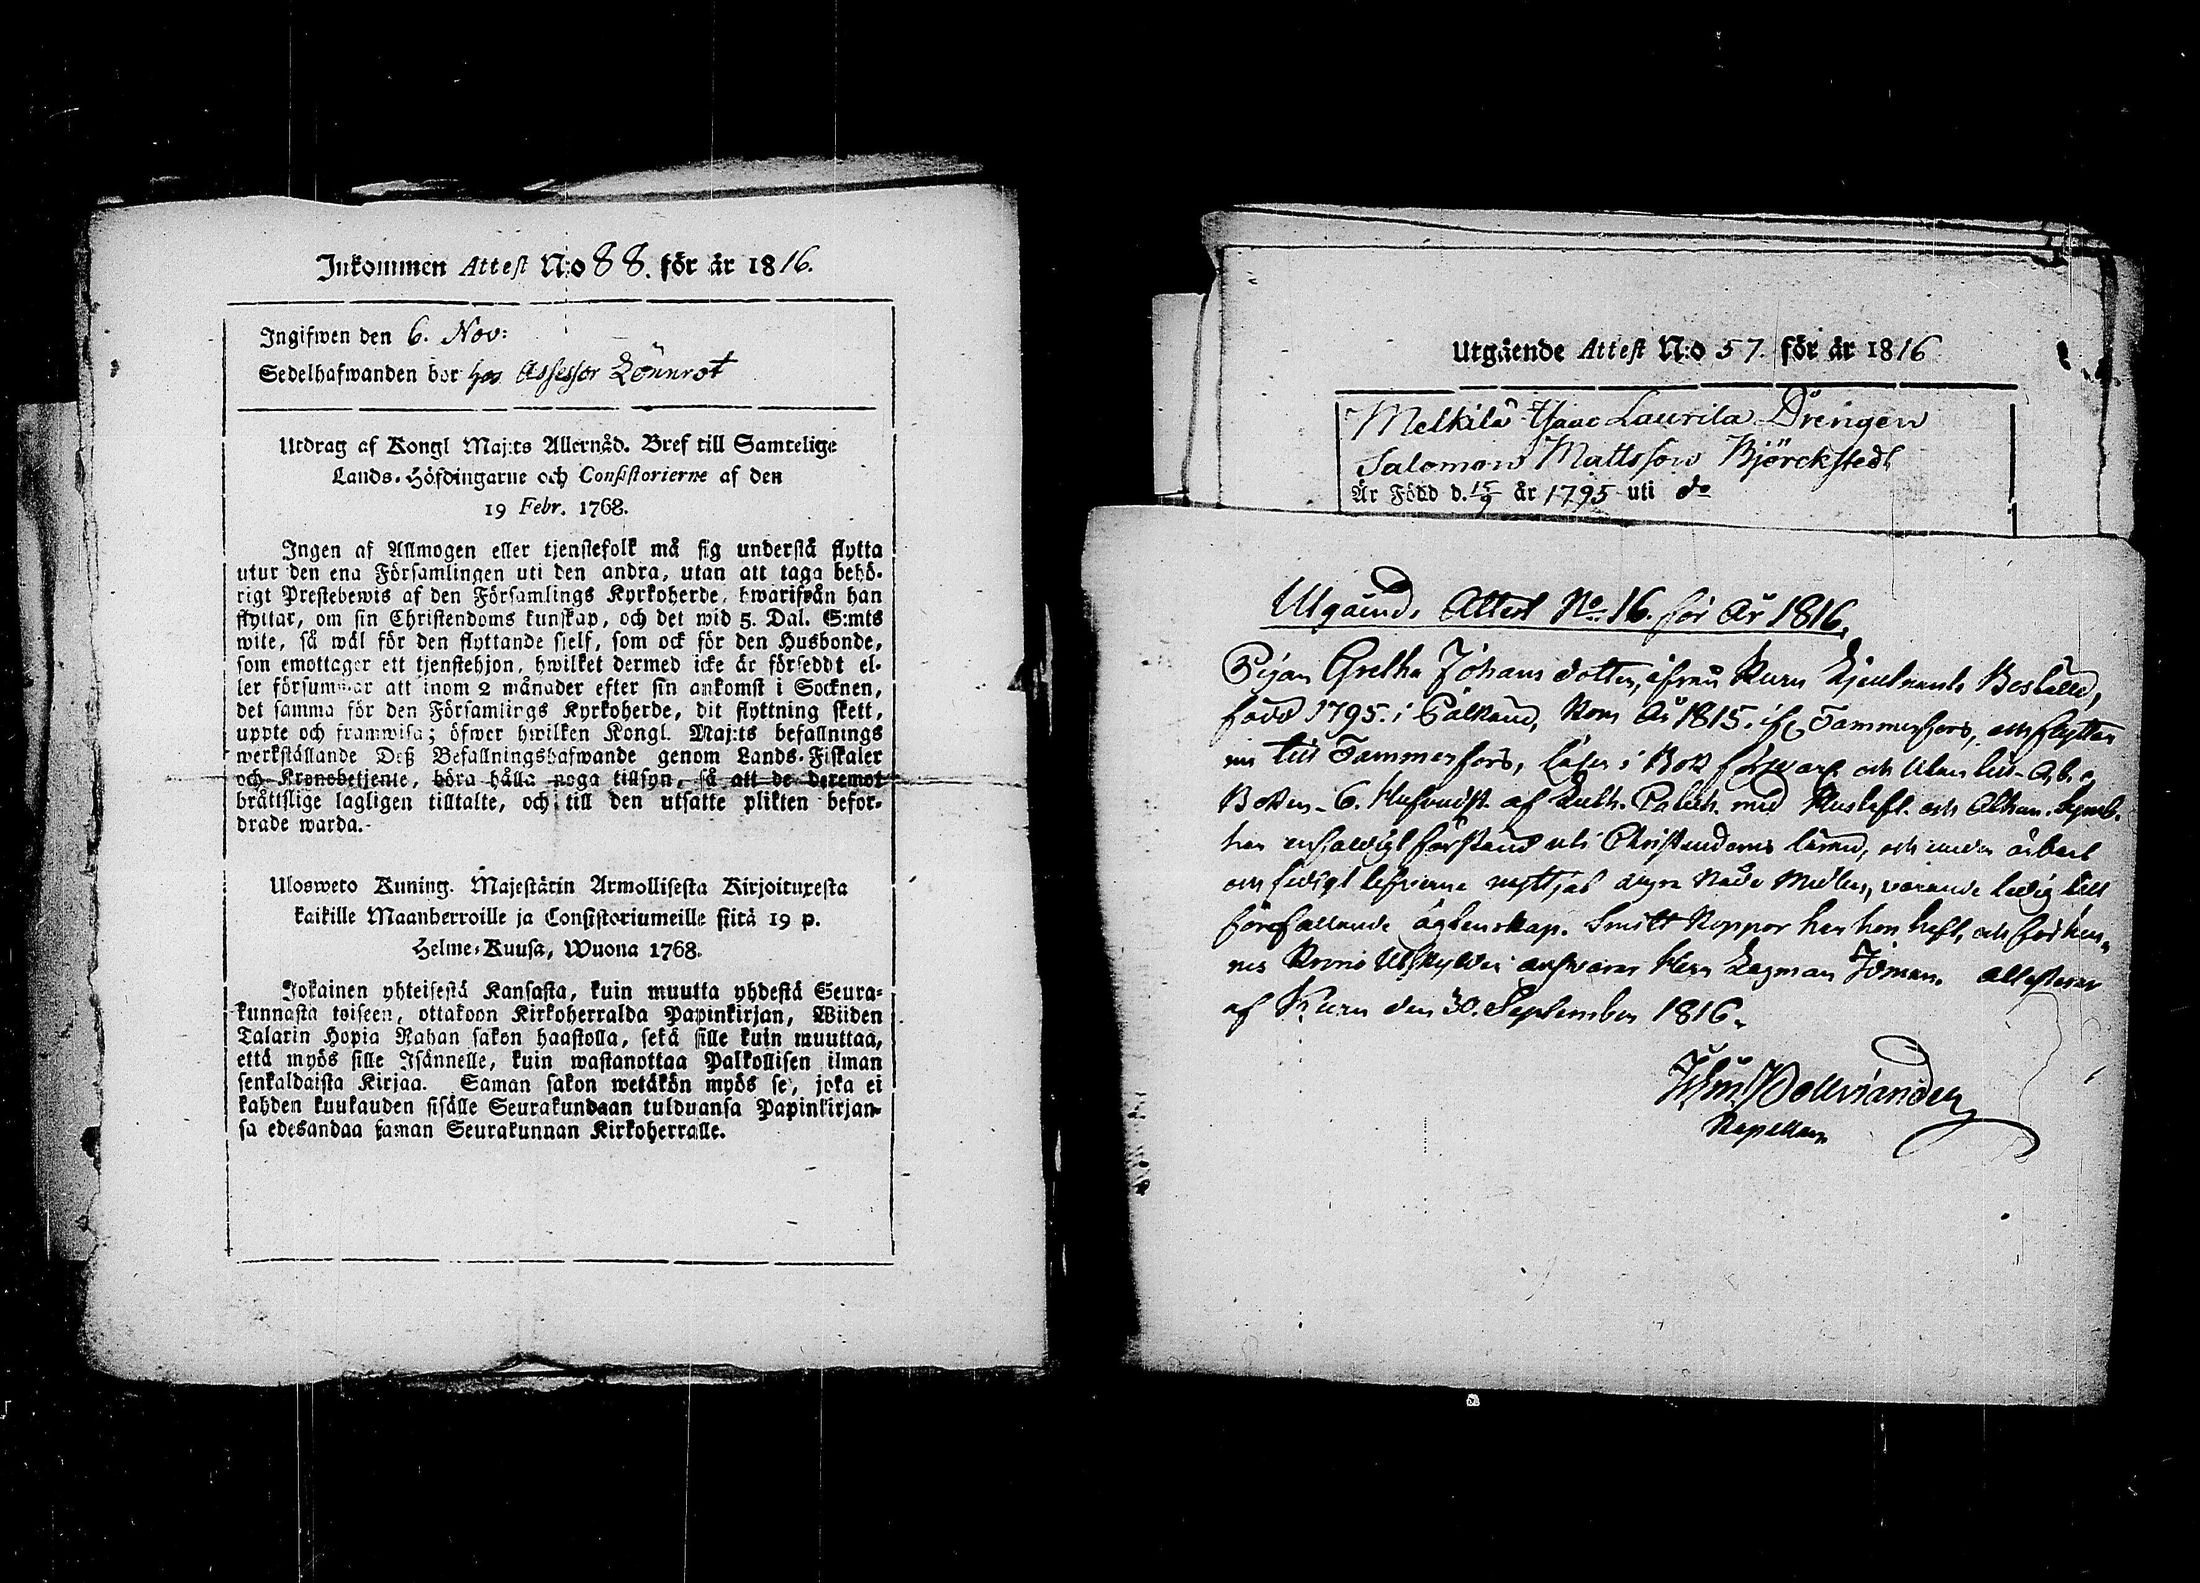 Inkommen Attest N:o 88. för år 1816.
Ingifwen den 6. Nov:
Sedelhafwanden bor hos Assessor Lönnrot
Utdrag af Kongl Maj:ts Allernåd. Bref till Samtelige
Lands-Höfdingarne och Consistorierne af den
19 Febr. 1768.
Ingen af Allmogen eller tjenstefolk må sig understå flytta
utur den ena Församlingen uti den andra, utan att taga behö-
rigt Prestebewis af den Församlings Kyrkoherde, hwarifrån han
flyttar, om sin Christendoms kunskap, och det wid 5. Dal. S:mts
wite, så wäl för den flyttande sjelf, som ock för den Husbonde,
som emottager ett tjenstehjon, hwilket dermed icke är förseddt el-
ler försummar att inom 2 månader efter sin ankomst i Socknen,
det samma för den Församlings Kyrkoherde, dit flyttning skett,
uppte och framwisa; öfwer hwilken Kongl. Maj:ts befallnings
werkställande Deß Befallningshafwande genom Lands-Fiskaler
och Kronobetjente, böra hålla noga tillsyn, så att de deremot
bråttslige lagligen tilltalte, och till den utsatte plikten befor-
drade warda.
Ulosweto Kuning. Majestätin Armollisesta Kirjoituxesta
kaikille Maanherroille ja Consistoriumeille siitä 19 p.
Helme-Kuusa, Wuona 1768.
Jokainen yhteisestä Kansasta, kuin muutta yhdestä Seura-
kunnasta toiseen, ottakoon Kirkoherralda Papinkirjan, Wiiden
Talarin Hopia Rahan sakon haastolla, sekä sille kuin muuttaa,
että myös sille Isännelle, kuin wastanottaa Palkollisen ilman
senkaldaista Kirjaa. Saman sakon wetäkön myös se, joka ei
kahden kuukauden sisälle Seurakundaan tulduansa Papinkirjan-
sa edesandaa saman Seurakunnan Kirkoherralle.
Utgående Attest N:o 57. för år 1816
Melkilä Isaac Laurila Drengen
Salomon Mattsson Björckstedt
Är Född d. 15/9 år 1795 uti do
Utgående Attest No. 16. för År 1816.
Pigan Gretha Johans dotter, ifrån Kuru Lieutnants Boställe,
född 1795. i Pälkäne, Kom År 1815. if. Tammerfors, och flyttar
nu till Tammerfors, läser i Bok försvarl. och utan till A,b,c,
Boken 6. Hufvudst. af Luth. Catech. med Hustafl. och Athan. Symb.
har enfaldigt förstånd uti Christendoms läran, och under ärbart
och fridigt lefverne nyttjat dyra Nåde Medlen, varande ledig till
förefallande ägtenskap. Smitt Koppor har hon haft, och för hen-
nes Krono Utskylder ansvarar Herr Lagman Idman. Attesterar
af Kuru den 30. September 1816.
Kapellan